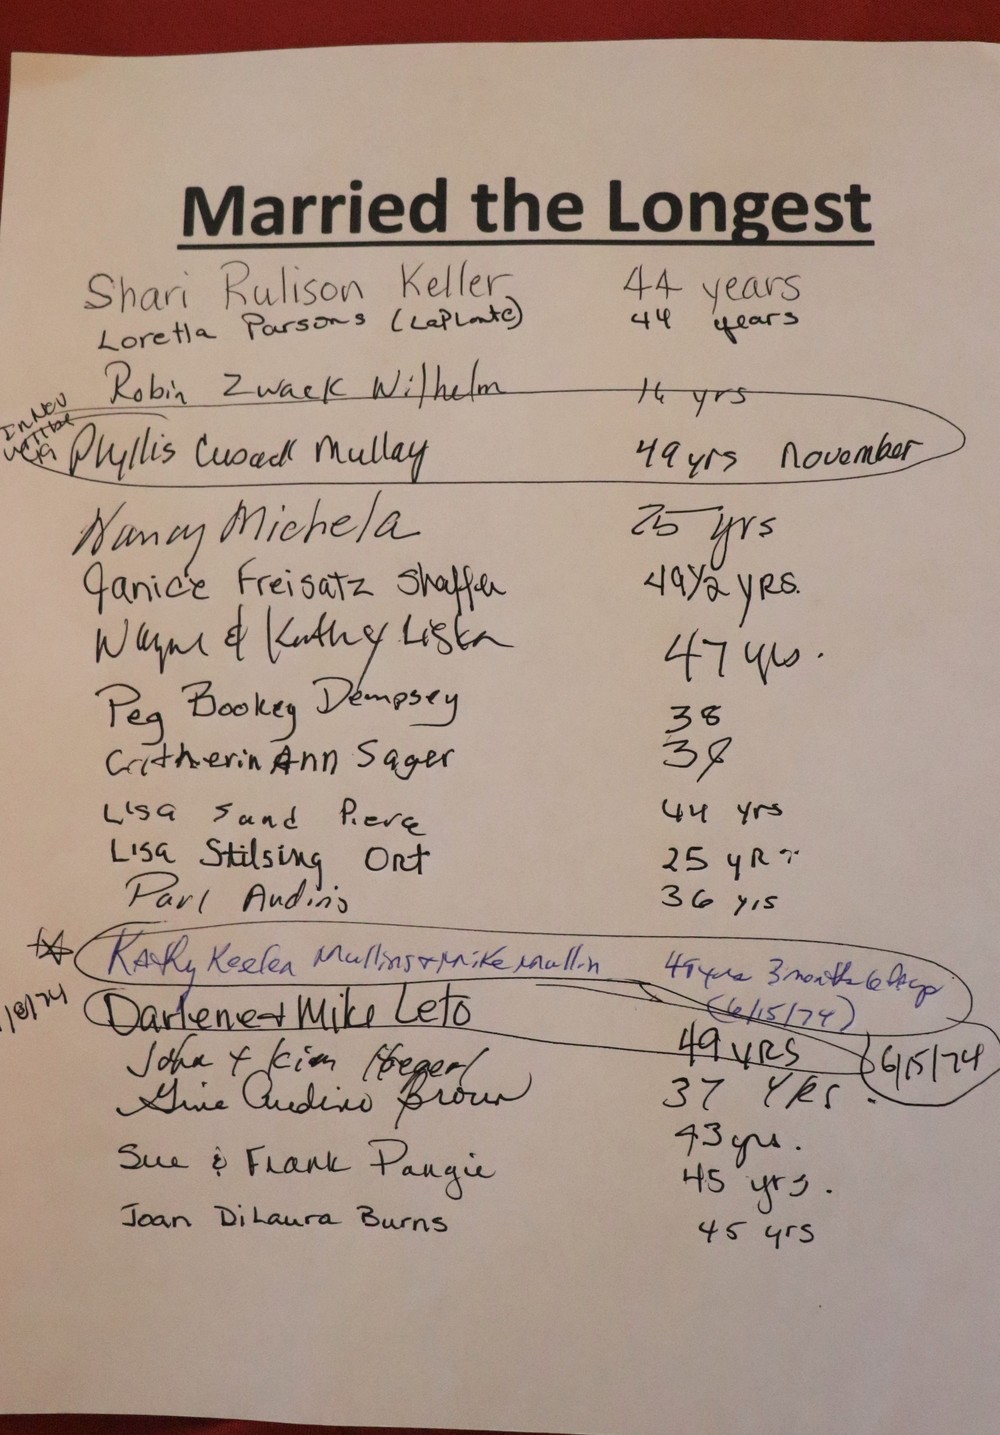 Married the Longest
Shari Rulison Keller 44 years
Loretta Parsons (LaPlante) 44 years
Robin Zwack Wilhelm yrs
In Nov
Phyllis Cusack Mullay 49 yrs November
Nancy Michela 25 yrs
Janice Freisatz Shaffer 49 1/2 YRS.
Wayne & Kathy Liska 47 yrs.
Peg Bookey Dempsey 38
Ann Sager
Lisa Sand Pierce 44 yrs
Lisa Stilsing Ort 25 YRS
Audino 36 yrs
Kathy Keefen Mullins + Mike Mullin 49 yrs 3 months 6 days
(6/15/74)
Darlene + Mike Leto 49 YRS 6/15/74
John + Kim 37 YRS.
Audino Brown 43 yrs.
Sue & Frank Pangie 45 yrs.
Joan DiLaura Burns 45 yrs